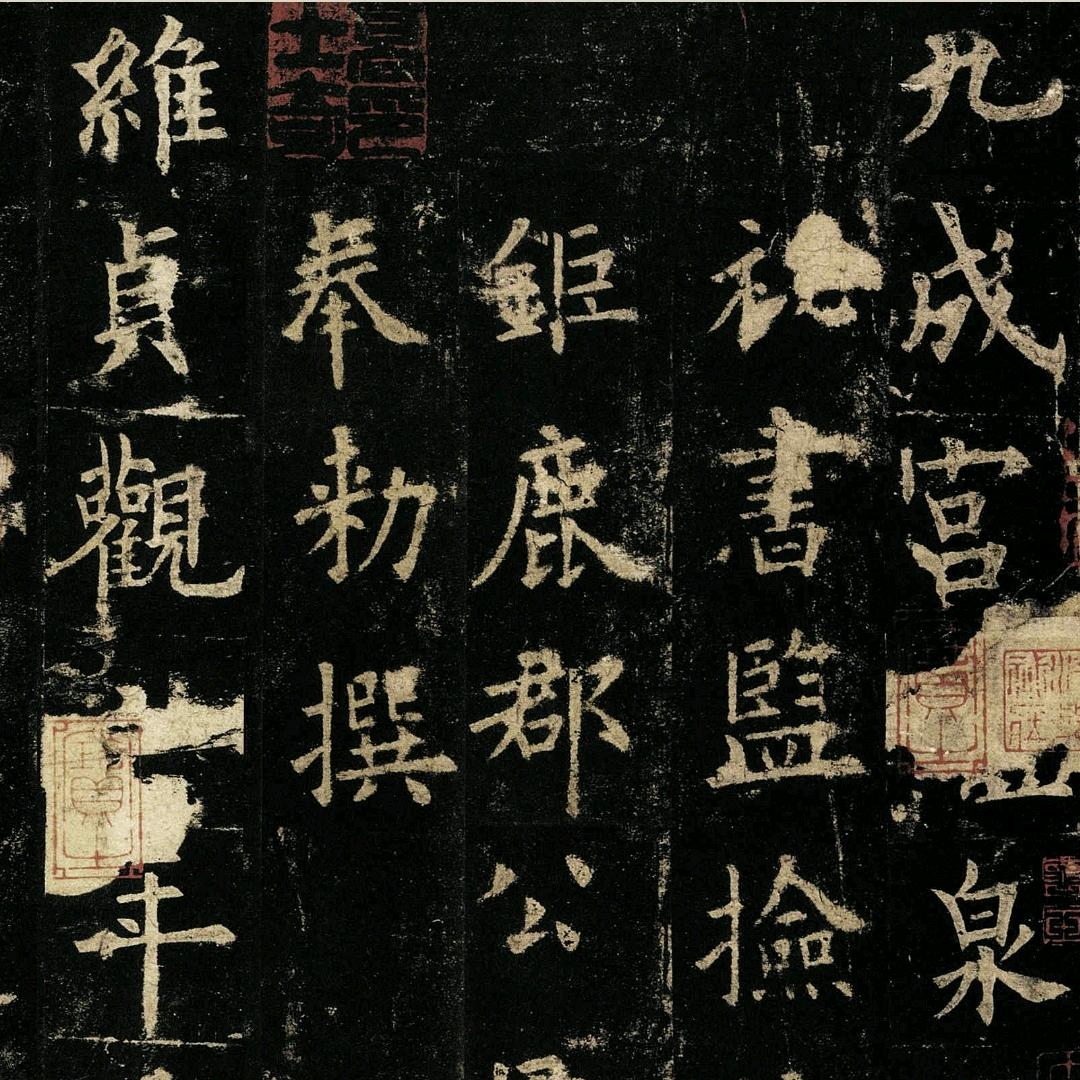 九成宮泉
祕書監撿
鉅鹿郡公
奉勅撰
維貞觀年